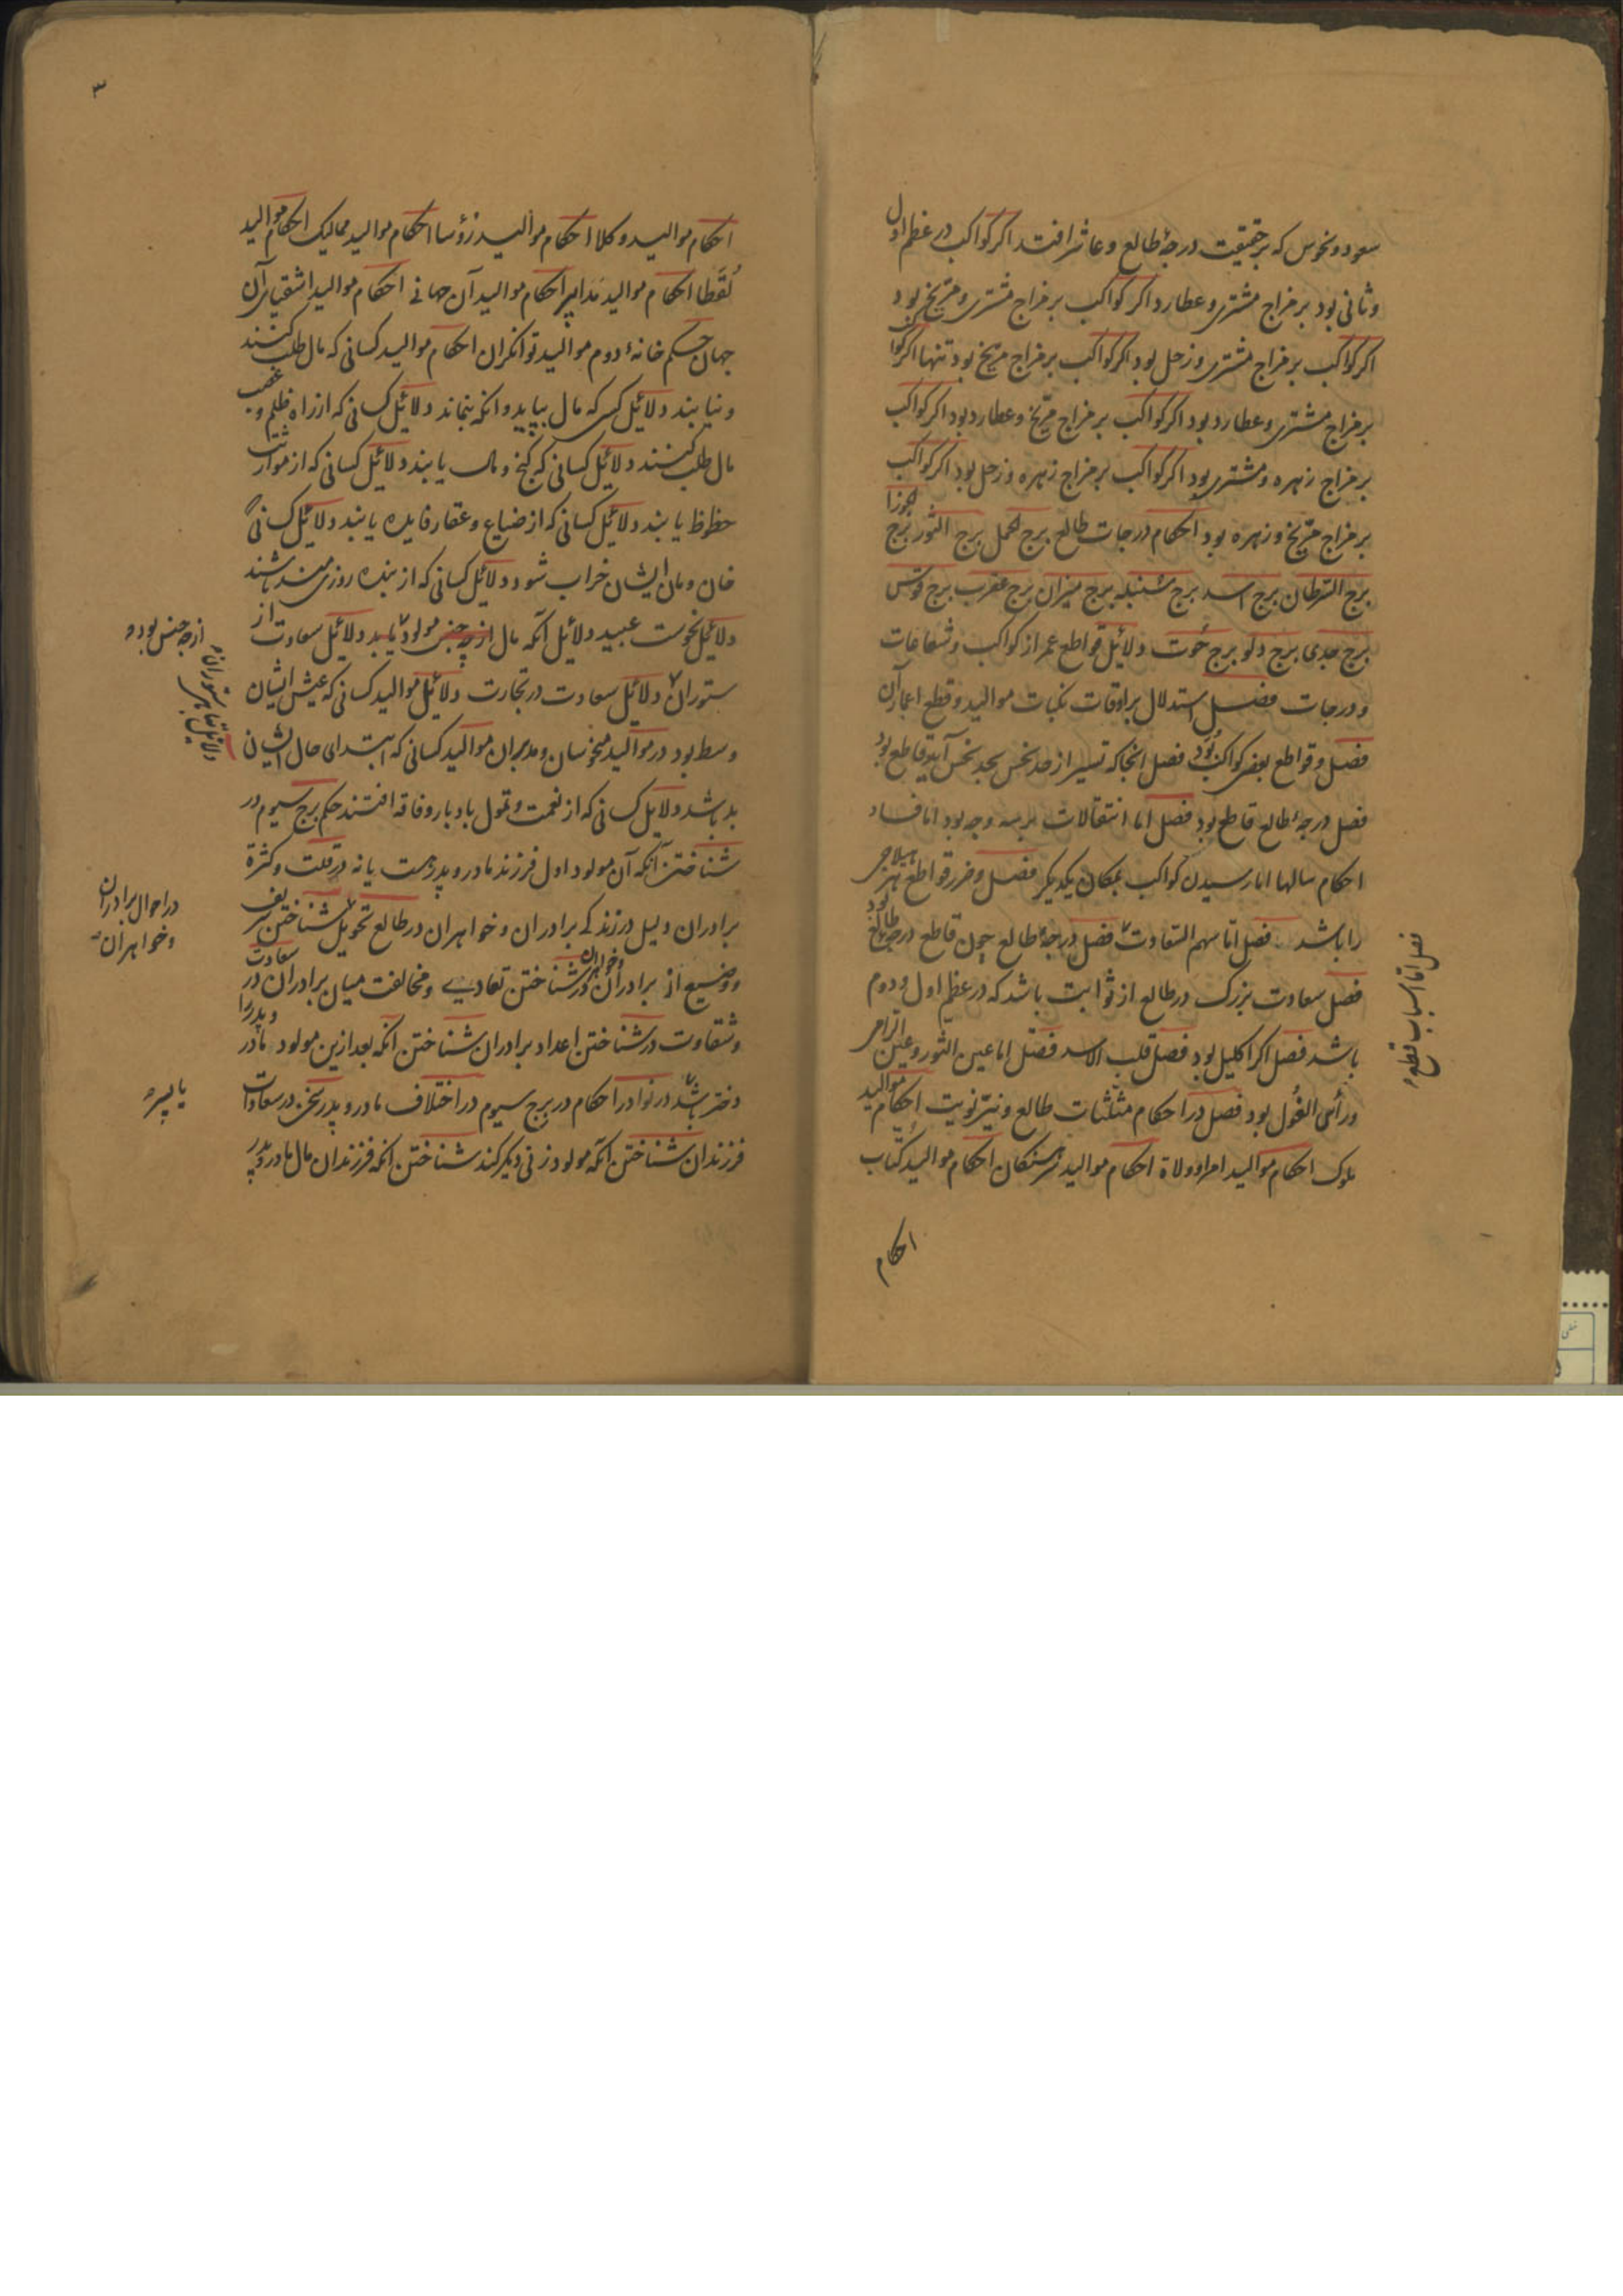 سعود و نحوس که بر حقیقت درجهٔ طالع و عاشر افتد اکر کواکب در عظم اول
و ثانی بود بر مزاج مشتری و عطارد اکر کواکب بر مزاج مشتری و مریخ بود
اکر کواکب بر مزاج مشتری و زحل بود اکر کواکب بر مزاج مریخ بود تنها اکر کواکب
بر مزاج مشتری و عطارد بود اکر کواکب بر مزاج مریخ و عطارد بود اکر کواکب
بر مزاج زهره و مشتری بود اکر کواکب بر مزاج زهره و زحل بود اکر کواکب
بر مزاج مریخ و زهره بود احکام درجات طالع برج الحمل برج الثور برج الجوزا
برج السرطان برج اسد برج سنبله برج میزان برج عقرب برج قوس
برج جدی برج دلو برج حوت دلائل قواطع عمر از کواکب و شعاعات
و درجات فصل استدلال بر اوقات نکبات موالید و قطع اعمار آن
فصل و قواطع بعضی کواکب بود فصل انجا که تسییر از حد نحس بحد نحس آید قاطع بود
فصل درجهٔ طالع قاطع بود فصل اما انتقالات بر سه وجه بود اما فساد
احکام سالها اما رسیدن کواکب بمکان یکدیکر فصل و ضرر قواطع هیلاج
را باشد فصل اما سهم السعادت فصل درجهٔ طالع چون قاطع درجهٔ طالع بود
فصل سعادت بزرک در طالع از ثوابت باشد که در عظم اول و دوم
باشد فصل اکر اکلیل بود فصل قلب الاسد فصل اما عین الثور و عین الرامی
و رأس الغول بود فصل در احکام مثلثات طالع و نیر نوبت احکام موالید
ملوک احکام موالید امرا و ولاة احکام موالید احکام موالید کتاب
احکام
فصل اما اسباب قطع
۳
احکام موالید وکلا احکام موالید رؤسا احکام موالید ممالیک احکام موالید
لقطا احکام موالید مدابیر احکام موالید آن جهانی احکام موالید اشقیای آن
جهان حکم خانهٔ دوم موالید توانکران احکام موالید کسانی که مال طلب کنند
و نیابند دلائل کسی که مال بیابد و انکه بنماند دلائل کسانی که از راه ظلم و غصب
مال طلب کنند دلائل کسانی که کنج و مال یابند دلائل کسانی که از مواریث
حظوظ یابند دلائل کسانی که از ضیاع و عقار فایده یابند دلائل کسانی که
خان و مان ایشان خراب شود دلائل کسانی که از بنده روزی مند باشند
دلائل نحوست عبید دلائل آنکه مال از چه جنس مولود یابد دلائل سعادت از
ستوران دلائل سعادت در تجارت دلائل موالید کسانی که عیش ایشان
وسط بود در موالید منحوسان و مدبران موالید کسانی که ابتدای حال ایشان
بد باشد دلایل کسانی که از نعمت و تمول بادبار و فاقه افتند حکم برج سیوم در
شناختن آنکه آن مولود اول فرزند مادر و پدرست یا نه در قلت و کثرة
برادران دلیل در زندکی برادران و خواهران در طالع تحویل شناختن شریف
و وضیع از برادران و خواهران در شناختن تعادی و مخالفت میان برادران در سعادت
و شقاوت در شناختن اعداد برادران شناختن انکه بعد ازین مولود مادر و پدر را
دختر باشد در نوادر احکام در برج سیوم در اختلاف مادر و پدر سخن در سعادات
فرزندان شناختن آنکه مولود زنی دیکر کند شناختن انکه فرزندان مال مادر و پدر
از چه جنس بود
در احوال برادران
و خواهران
یا پسر